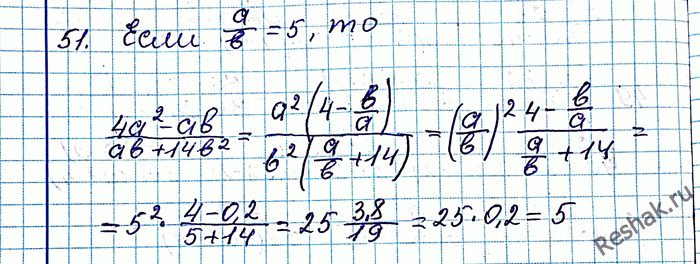 51. Если a/в = 5, то
(4a² - aв)/(aв + 14в²) = (a²(4 - в/a))/(в²(a/в + 14)) = (a/в)² (4 - в/a)/(a/в + 14) =
= 5² · (4 - 0,2)/(5 + 14) = 25 3,8/19 = 25 · 0,2 = 5
Reshak.ru